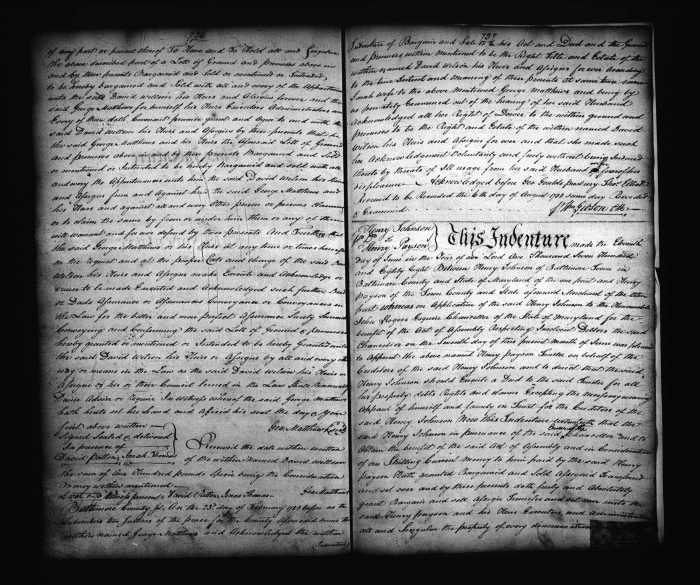 736
of any part or parcel thereof To Have and To Hold all and Singular
the above described piece of a Lott of Ground and Premises above in
and by these presents Bargained and Sold or mentioned or Intended
to be hereby Bargained and Sold with all and every of the Appurtenances
unto the said David Wilson his Heirs and Assigns forever and the
said George Matthews for himself his Heirs Executors Administrators
Every of them doth Covenant promise grant and Agree to and with the
said David Wilson his Heirs and Assigns by these presents that he
the said George Matthews and his Heirs the Aforesaid Lott of Ground
and premises above and by these presents Bargained and Sold
or mentioned or Intended to be hereby Bargained and Sold with all
and every the Appurtenances unto him the said David Wilson his Heirs
and Assigns from and Against him the said George Matthews and
his Heirs and against all and every other person or persons
to claim the same by from or under him them or any of them
will warrant and for ever defend by these presents And Further that
the said George Matthews his Heirs at any time or times
on the request and at the proper Costs and charge of the said David
Wilson his Heirs and Assigns make Execute and Acknowledge
cause to be made Executed and Acknowledged such further Deed
or Deeds Assurance or Assurances Conveyance or Conveyances in
the Law for the better and more perfect Assurance Surety
Conveying and Confirming the said Lott of Ground & premises
hereby granted or mentioned or Intended to be hereby Granted unto
the said David Wilson his Heirs or Assigns by all and every
way or means in the Law as the said David Wilson his Heirs
Assigns or his or their Council learned in the Law shall
Devise Advise or require In Witness whereof the said George Matthews
hath hereto set his hand and affixed his seal the day & Year
first above written
Geo Matthews
Signed Sealed & delivered
In presence of
David Jonas Thomas
Received the date within written
of the within Named David Wilson
the sum of One Hundred pounds Specie being the Consideration
Money within mentioned
Geo Matthews
present David Jonas Thomas
Baltimore County On the 23d day of February 1788 before us the
Subscribers two Justices of the peace for the County Aforesaid came the
within named George Matthews and Acknowledged the within
Indenture
737
Indenture of Bargain and Sale to be his Act and Deed and the Ground
and premises within mentioned to be the Right Title and Estate of the
within named David Wilson his Heirs and Assigns for ever According
to the true Intent and Meaning of these presents at same time
Sarah wife to the above Mentioned George Matthews and being by
us privately Examined out of the hearing of her said Husband
Acknowledged all her Right of Dower to the within ground and
premises to be the Right and Estate of the within named David
Wilson his Heirs and Assigns for ever and that she made such
her Acknowledgment Voluntarily and freely without being induced
thereto by threats of Ill usage from her said Husband or fear of his
displeasure Acknowledged before Geo
Received to be Recorded the 6th day of August 1788 same day Recorded
& Examined
Wm Gibson Clk
Henry Johnson
to
Henry Payson
This Indenture made the Eleventh
day of June in the Year of our Lord One Thousand Seven Hundred
and Eighty Eight Between Henry Johnson of Baltimore Town in
Baltimore County and State of Maryland of the one part and Henry
Payson of the Same County and State aforesaid Merchant of the other
part Whereas on Application of the said Henry Johnson to the Honourable
John Rogers Esquire Chancellor of the State of Maryland for the
benefit of the Act of Assembly Respecting Insolvent Debtors the said
Chancellor on the Seventh day of this present Month of June was pleased
to Appoint the above named Henry Payson Trustee on behalf of the
Creditors of the said Henry Johnson and to direct that the said
Henry Johnson should Execute a Deed to the said Trustee for all
his property debts Rights and Claims Excepting the necessary wearing
Apparel of himself and family in Trust for the Creditors of the
said Henry Johnson Now This Indenture witnesseth that the
said Henry Johnson in pursuance of the said Chancellor and to
Obtain the benefit of the said Act of Assembly and in Consideration
of one Shilling Current Money to him paid by the said Henry
Payson Hath granted Bargained and Sold Assigned Transfered
and set over and by these presents doth fully and Absolutely
grant Bargain and sell Assign Transfer and set over unto the
said Henry Payson and his Heirs Executors and Administrators
all and Singular the property of every denomination